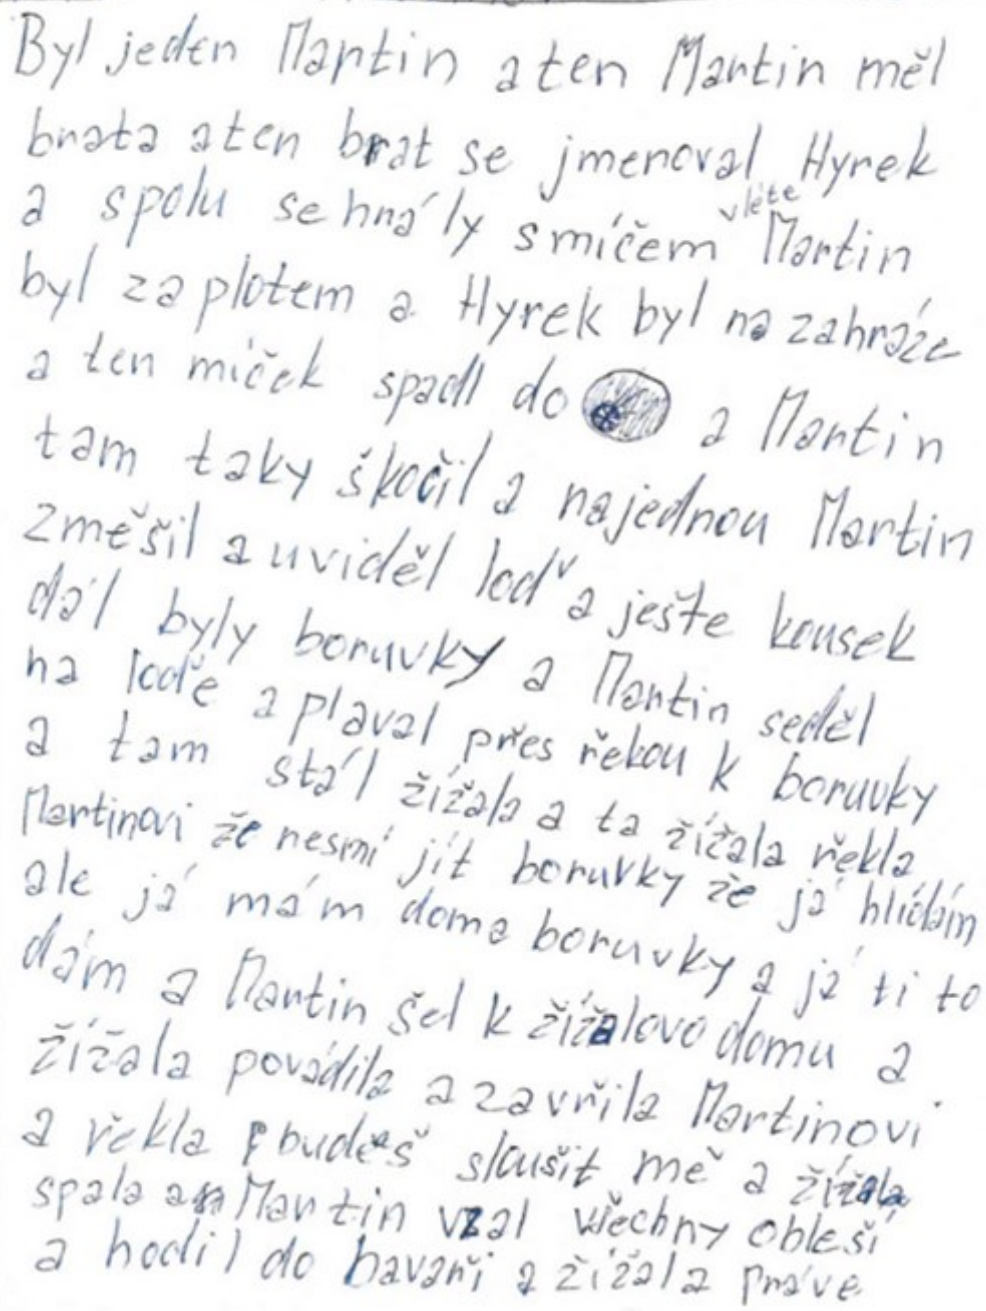 Byl jeden Martin a ten Martin měl
brata a ten brat se jmenoval Hyrek
a spolu se hnály s míčem vléte Martin
byl za plotem a Hyrek byl na zahráze
a ten míček spadl do a Martin
tam taky škočil a najednou Martin
změšil a uviděl loď a ješte kousek
dál byly boruvky a Martin seděl
na lodě a plaval přes řekou k boruvky
a tam stál žížala a ta žížala řekla
Martinovi že nesmí jít boruvky že já hlídám
ale já mám doma boruvky a já ti to
dám a Martin šel k žížalovo domu a
žížala povádila a zavřila Martinovi
a řekla budeš sloušit mě a žížala
spala a Martin vzal všechny obleší
a hodil do bavaři a žížala práve